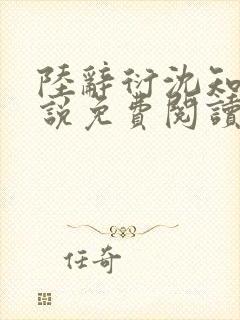 陸辭衍沈知
說免費閱讀
任奇